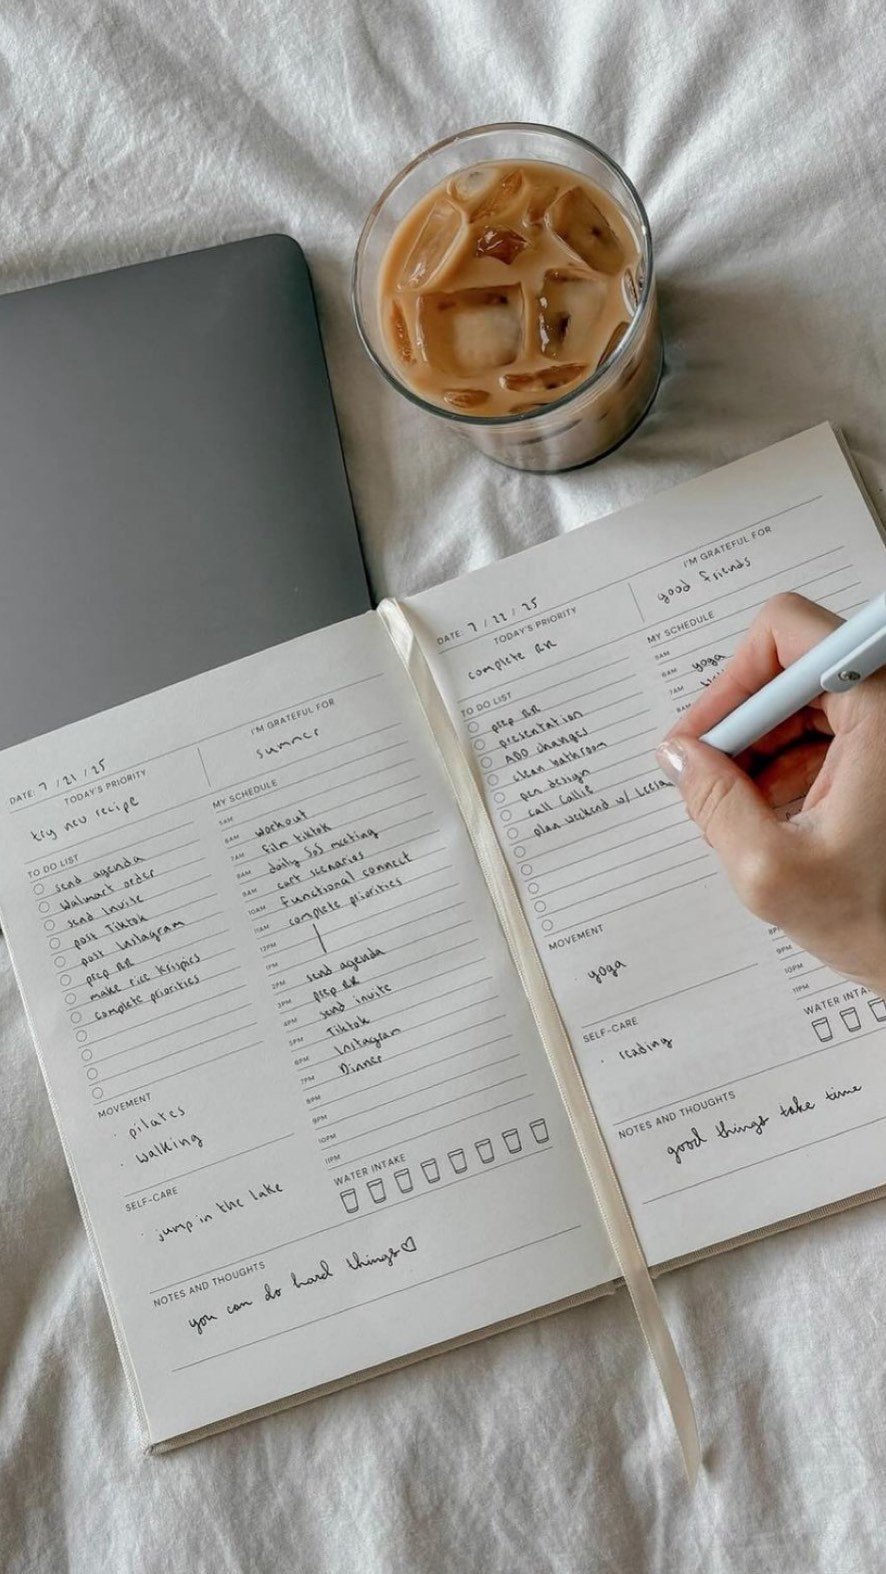 DATE: 7 / 21 / 25
TODAY'S PRIORITY
try new recipe
I'M GRATEFUL FOR
summer
TO DO LIST
send agenda
Walmart order
send invite
post Tiktok
post Instagram
prep RR
make rice krispies
complete priorities
MY SCHEDULE
5AM
6AM workout
7AM film tiktok
8AM daily SOS meeting
9AM cart scenarios
10AM functional connect
11AM complete priorities
12PM
1PM
2PM send agenda
3PM prep RR
4PM send invite
5PM Tiktok
6PM Instagram
7PM Dinner
8PM
9PM
10PM
11PM
MOVEMENT
· pilates
· walking
SELF-CARE
· jump in the lake
WATER INTAKE
NOTES AND THOUGHTS
you can do hard things♡
DATE: 7 / 22 / 25
TODAY'S PRIORITY
complete RR
I'M GRATEFUL FOR
good friends
TO DO LIST
prep RR
presentation
ADO changes
clean bathroom
pen design
call Callie
plan weekend w/
MY SCHEDULE
5AM
6AM yoga
7AM
8AM
9PM
10PM
11PM
MOVEMENT
· yoga
SELF-CARE
· reading
WATER
NOTES AND THOUGHTS
good things take time